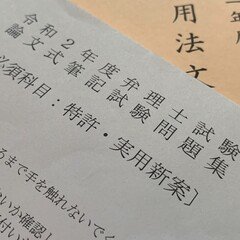 令和2年度弁理士試験
論文式筆記試験問題集
必須科目：特許・実用新案］
るまで手を触れないでく
ないか確認し
用法文